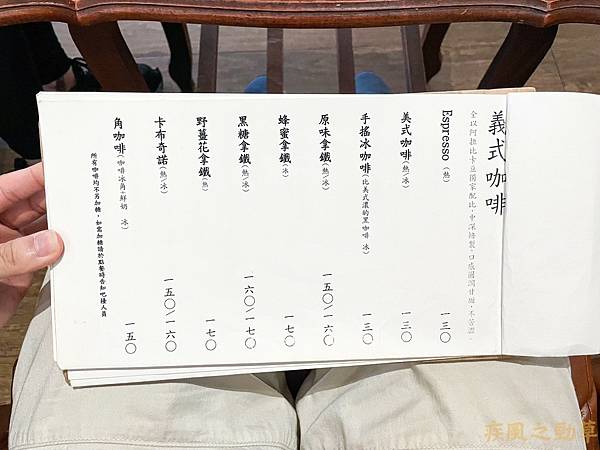 義式咖啡
全以阿拉比卡豆獨家配比，中深焙製，口感圓潤甘甜，不苦澀
Espresso（熱） 一三〇
美式咖啡（熱/冰） 一三〇
手搖冰咖啡（比美式濃的黑咖啡 冰） 一三〇
原味拿鐵（熱/冰） 一五〇/一六〇
蜂蜜拿鐵（冰） 一七〇
黑糖拿鐵（熱/冰） 一六〇/一七〇
野薑花拿鐵（熱） 一七〇
卡布奇諾（熱/冰） 一五〇/一六〇
角咖啡（咖啡冰角+鮮奶 冰） 一五〇
所有咖啡均不另加糖，如需加糖請於點餐時告知吧檯人員
疾風之勁草